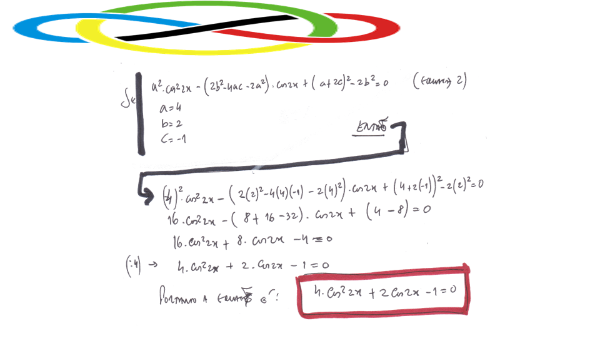 Se a²·cos²2x - (2b²-4ac-2a²)·cos2x + (a+2c)²-2b²=0 (EQUAÇÃO 2)
a=4
b=2
c=-1
ENTÃO
(4)²·cos²2x - (2(2)²-4(4)(-1)-2(4)²)·cos2x + (4+2(-1))²-2(2)²=0
16·cos²2x - (8+16-32)·cos2x + (4-8)=0
16·cos²2x + 8·cos2x - 4=0
(:4) → 4·cos²2x + 2·cos2x - 1=0
PORTANTO A EQUAÇÃO É: 4·cos²2x + 2cos2x - 1=0